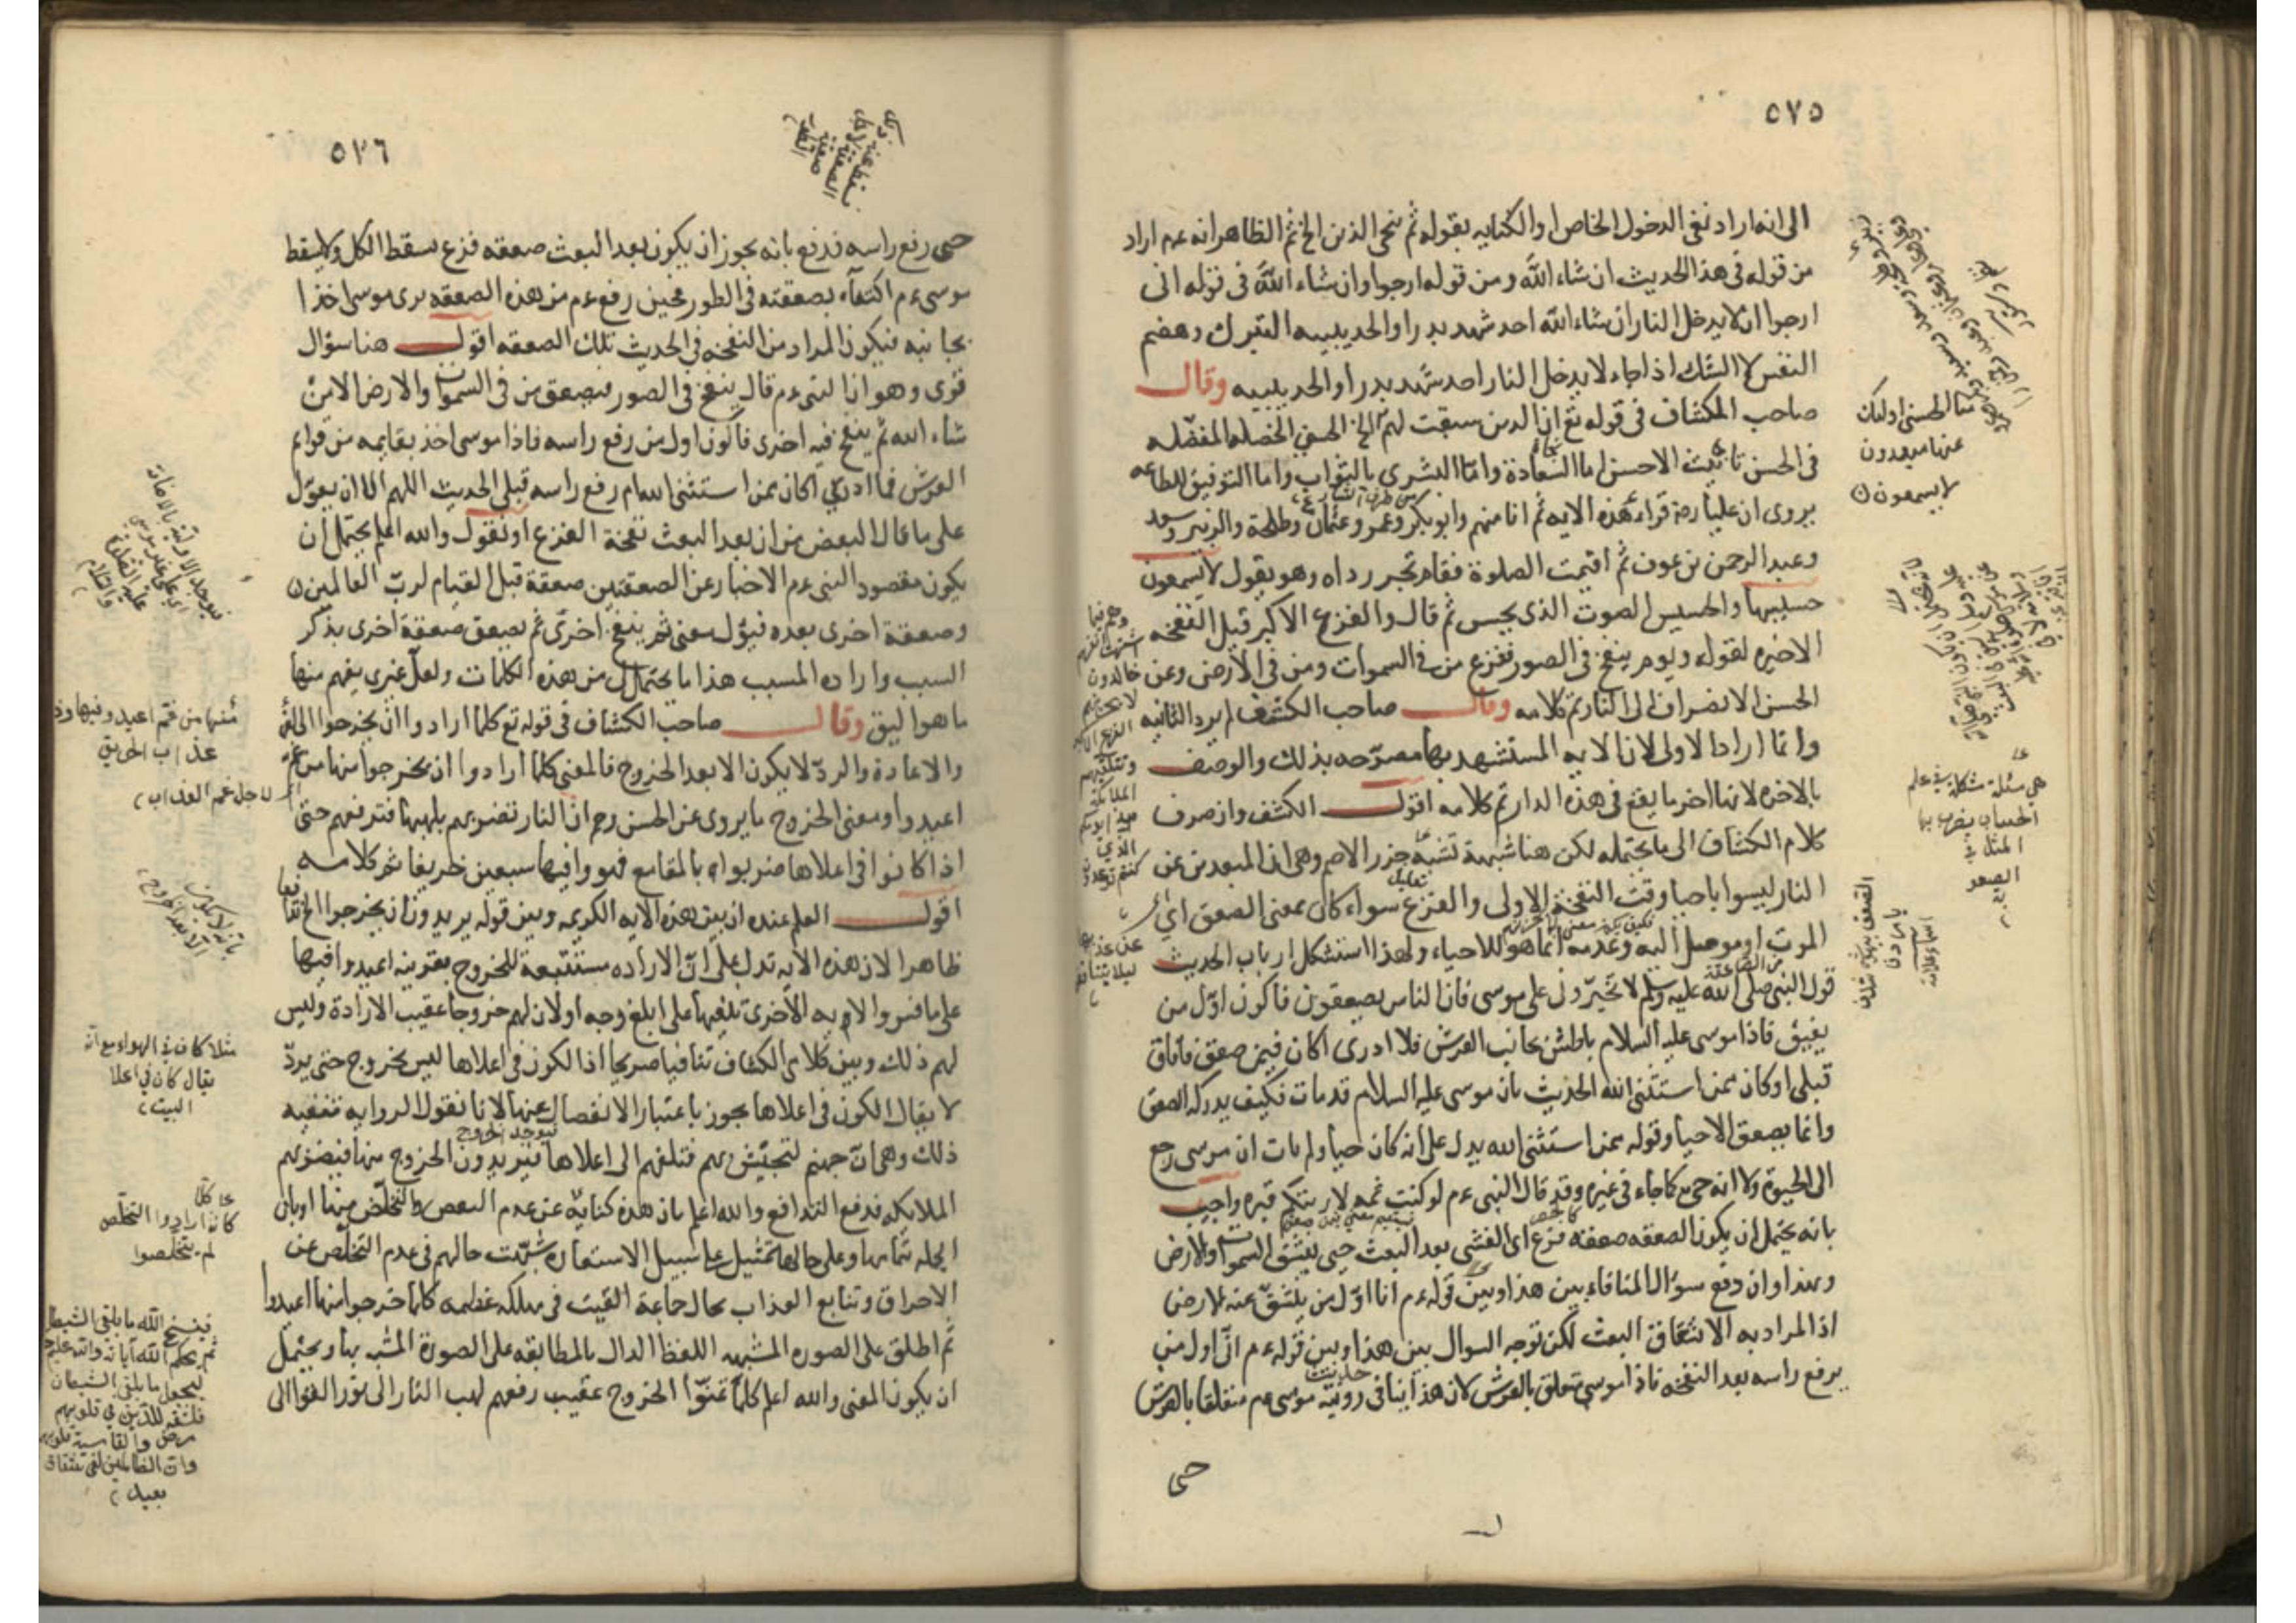 ٥٧٥
الى انه اراد نفى الدخول الخاص او الكنايه بقوله ثم ننجى الذين الخ ثم الظاهر انه عم اراد
من قوله فى هذا الحديث ان شاء الله ومن قوله ارجوا وان شاء الله فى قوله انى
ارجوا ان لا يدخل النار ان شاء الله احد شهد بدرا والحديبيه التبرك وهضم
النفس لا الشك اذا جاء لا يدخل النار احد شهد بدرا والحديبيه وقال
صاحب الكشاف فى قوله تع ان الذين سبقت لهم الخ الحسنى الخصله المفضله
فى الحسن تانيث الاحسن اما السعادة واما البشرى بالثواب واما التوفيق للطاعه
يروى ان عليا رضه قراء هذه الايه ثم انا منهم وابو بكر وعمر وعثمان وطلحة والزبير وسعد
وعبد الرحمن بن عوف ثم اقيمت الصلوة فقام تجبر رداه وهو يقول لا يسمعون
حسيسها والحسيس الصوت الذى يحس ثم قال والفزع الاكبر قيل النفخه
الاخيره لقوله ويوم ينفخ فى الصور ففزع من فى السموات ومن فى الارض وعن
الحسن الانصراف الى النار تم كلامه وقال صاحب الكشف لم يرد الثانيه
وانما اراد الاولى لان الايه المستشهد بها مصرحه بذلك والوصف
بالاخره لانها اخر ما يقع فى هذه الدار تم كلامه اقول الكشف وان صرف
كلام الكشاف الى ما يحتمله لكن هنا شبهة تشبه جزر الاصم وهى ان المبعدين عن
النار ليسوا باحيا وقت النفخة الاولى والفزع سواء كان بمعنى الصعق اى
الموت او موصل اليه وعدمه انما هو للاحياء ولهذا استشكل ارباب الحديث
قول النبى صلى الله عليه وسلم لا تخيرونى على موسى فان الناس يصعقون فاكون اول من
يفيق فاذا موسى عليه السلام باطش بجانب العرش فلا ادرى اكان فيمن صعق فافاق
قبلى او كان ممن استثنى الله الحديث بان موسى عليه السلام قد مات فكيف يدركه الصعق
وانما يصعق الاحيا وقوله ممن استثنى الله يدل على انه كان حيا ولم يات ان موسى رجع
الى الحيوة ولا انه حى كما جاء فى غيره وقد قال النبى عم لو كنت ثمه لاريتكم قبره واجيب
بانه يحتمل ان يكون الصعقه صعقه فزع اى الغشى بعد البعث حين يغشى السموات والارض
وهذا وان دفع سؤال المنافاه بين هذا وبين قوله عم انا اول من ينشق عنه الارض
اذ المراد به الانشقاق البعث لكن توجه السوال بين هذا وبين قوله عم انى اول من
يرفع راسه بعد النفخه فاذا موسى متعلق بالعرش لان هذا ينافى رؤية موسى عم متعلقا بالعرش
حتى
منا الحسنى اولئك
عنها مبعدون
لا يسمعون
هى مسئلة مشكلة فى علم
الحساب يضرب بها
المثل فى
الصعو
بة
وهم فيما
اشتهت انفسهم
خالدون
لا يحزنهم
الفزع الاكبر
وتتلقيهم
الملائكة
هذا يومكم
الذى
كنتم توعدون
٥٧٦
حتى رفع راسه فدفع بانه يجوز ان يكون بعد البعث صعقه فزع يسقط الكل ولا يسقط
موسى عم اكتفاء بصعقته فى الطور فحين رفع عم من هذه الصعقه يرى موسى اخذا
بجانبه فيكون المراد من النفخه فى الحديث تلك الصعقه اقول هنا سؤال
قوى وهو ان النبى عم قال ينفخ فى الصور فيصعق من فى السموات والارض الا من
شاء الله ثم ينفخ فيه اخرى فاكون اول من رفع راسه فاذا موسى اخذ بقايمه من قوائم
العرش فما ادرى اكان ممن استثنى الله ام رفع راسه قبلى الحديث اللهم الا ان يعول
على ما قال البعض من ان بعد البعث نفخة الفزع او نقول والله اعلم يحتمل ان
يكون مقصود النبى عم الاخبار عن الصعقتين صعقة قبل القيام لرب العالمين
وصعقة اخرى بعده فيؤل معنى ثم ينفخ اخرى ثم يصعق صعقة اخرى بذكر
السبب واراده المسبب هذا ما يحتمل لى من هذه الكلمات ولعل غيرى يفهم منها
ما هو اليق وقال صاحب الكشاف فى قوله تع كلما ارادوا ان يخرجوا الى اخره
والاعادة والرد لا يكون الا بعد الخروج فالمعنى كلما ارادوا ان يخرجوا منها من غم
اعيدوا ومعنى الخروج ما يروى عن الحسن رحم ان النار تضربهم بلهبها فترفعهم حتى
اذا كانوا فى اعلاها ضربوا بالمقامع فهووا فيها سبعين خريفا تم كلامه
اقول العلم عنده ان بين هذه الايه الكريمه وبين قوله يريدون ان يخرجوا الخ تدافعا
ظاهرا لان هذه الايه تدل على ان الاراده مستتبعة للخروج بقرينه اعيدوا فيها
على ما فسر والايه الاخرى تنفيها على ابلغ وجه اولان لهم خروجا عقيب الارادة وليس
لهم ذلك وبين كلامى الكشاف تنافيا صريحا اذ الكون فى اعلاها ليس بخروج حتى يرد
لا يقال الكون فى اعلاها يجوز باعتبار الانفصال عنها لانا نقول الروايه تنفيه
ذلك وهى ان جهنم لتجيش بهم فتلقهم الى اعلاها فيريدون الخروج منها فيضربهم
الملايكه فدفع التدافع والله اعلم بان هذه كنايه عن عدم البعض والتخلص منها او بان
الجله بتمامها وعلى حالها تمثيل على سبيل الاستعاره شبهت حالهم فى عدم التخلص عن
الاحراق وتتابع العذاب بحال جماعة القيت فى مهلكه عظيمه كلما خرجوا منها اعيدوا
ثم اطلق على الصوره المشبهه اللفظ الدال بالمطابقه على الصورة المشبه بها ويحتمل
ان يكون المعنى والله اعلم كلما تمنوا الخروج عقيب رفعهم لهب النار الى فور القوا الى
منها من غم اعيدوا فيها وذوقوا
عذاب الحريق
اى لاجل غم العذاب
مثلا كان فى الهواء مع انه
يقال كان فى اعلا
البيت
كلما
كانوا ارادوا التخلص
لم يتخلصوا
فينسخ الله ما يلقى الشيطان
ثم يحكم الله آياته والله عليم حكيم
ليجعل ما يلقى الشيطان
فتنة للذين فى قلوبهم
مرض والقاسية قلوبهم
وان الظالمين لفى شقاق
بعيد